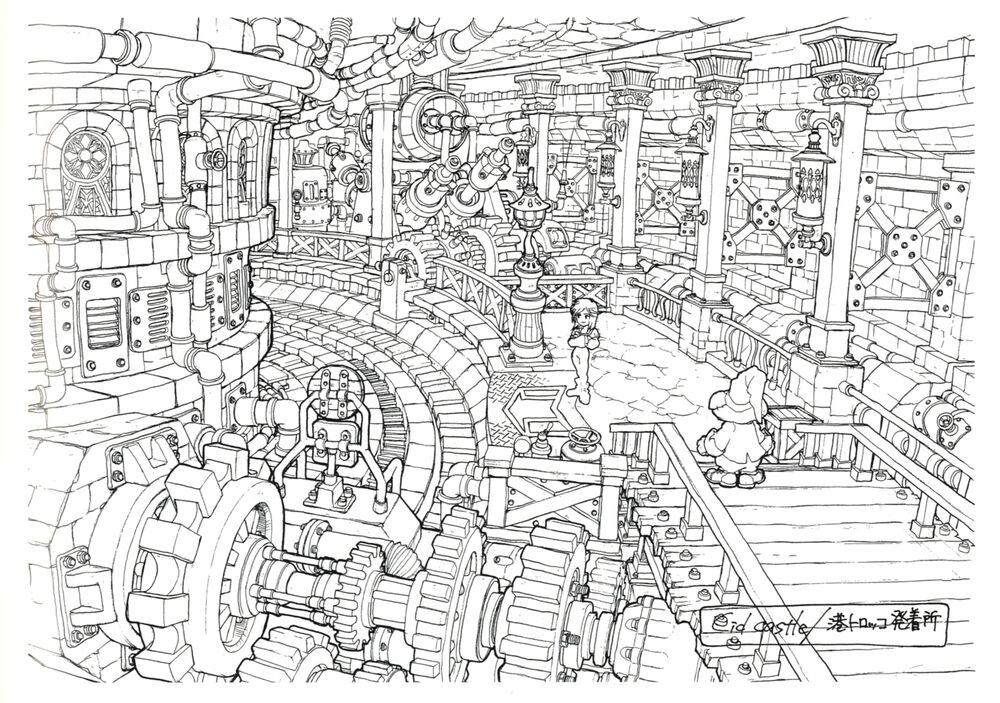 Cid castle/港トロッコ発着所